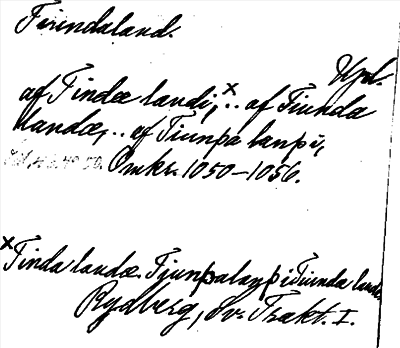 Tiundaland.
Upl.
af Tindæ landi,ˣ .. af Tiunda
landæ, .. af Tiunþa lanþi,
Omkr. 1050–1056.
ˣTinda landæ. Tjunþalanþi Tiunda land
Rydberg, Sv. Trakt. I.